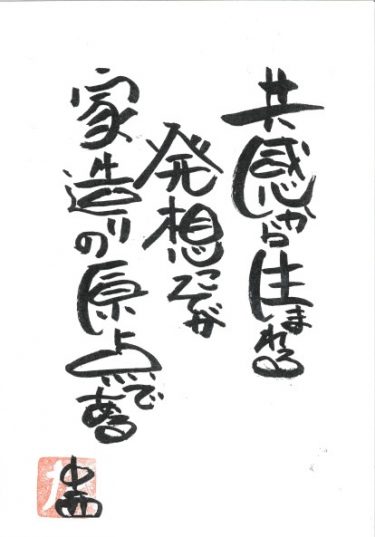 共感から生まれる
発想こそが
家造りの原点である
中西